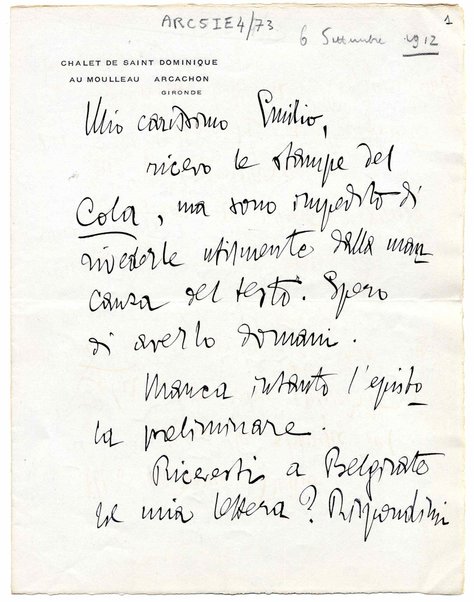 ARC5IE4/73
1
6 Settembre 1912
CHALET DE SAINT DOMINIQUE
AU MOULLEAU ARCACHON
GIRONDE
Mio carissimo Emilio,
ricevo le stampe del
Cola, ma sono impedito di
rivederle utilmente dalla man
canza del testo. Spero
di averlo domani.
Manca intanto l'episto
la preliminare.
Ricevesti a Belgirate
la mia lettera? Rispondimi